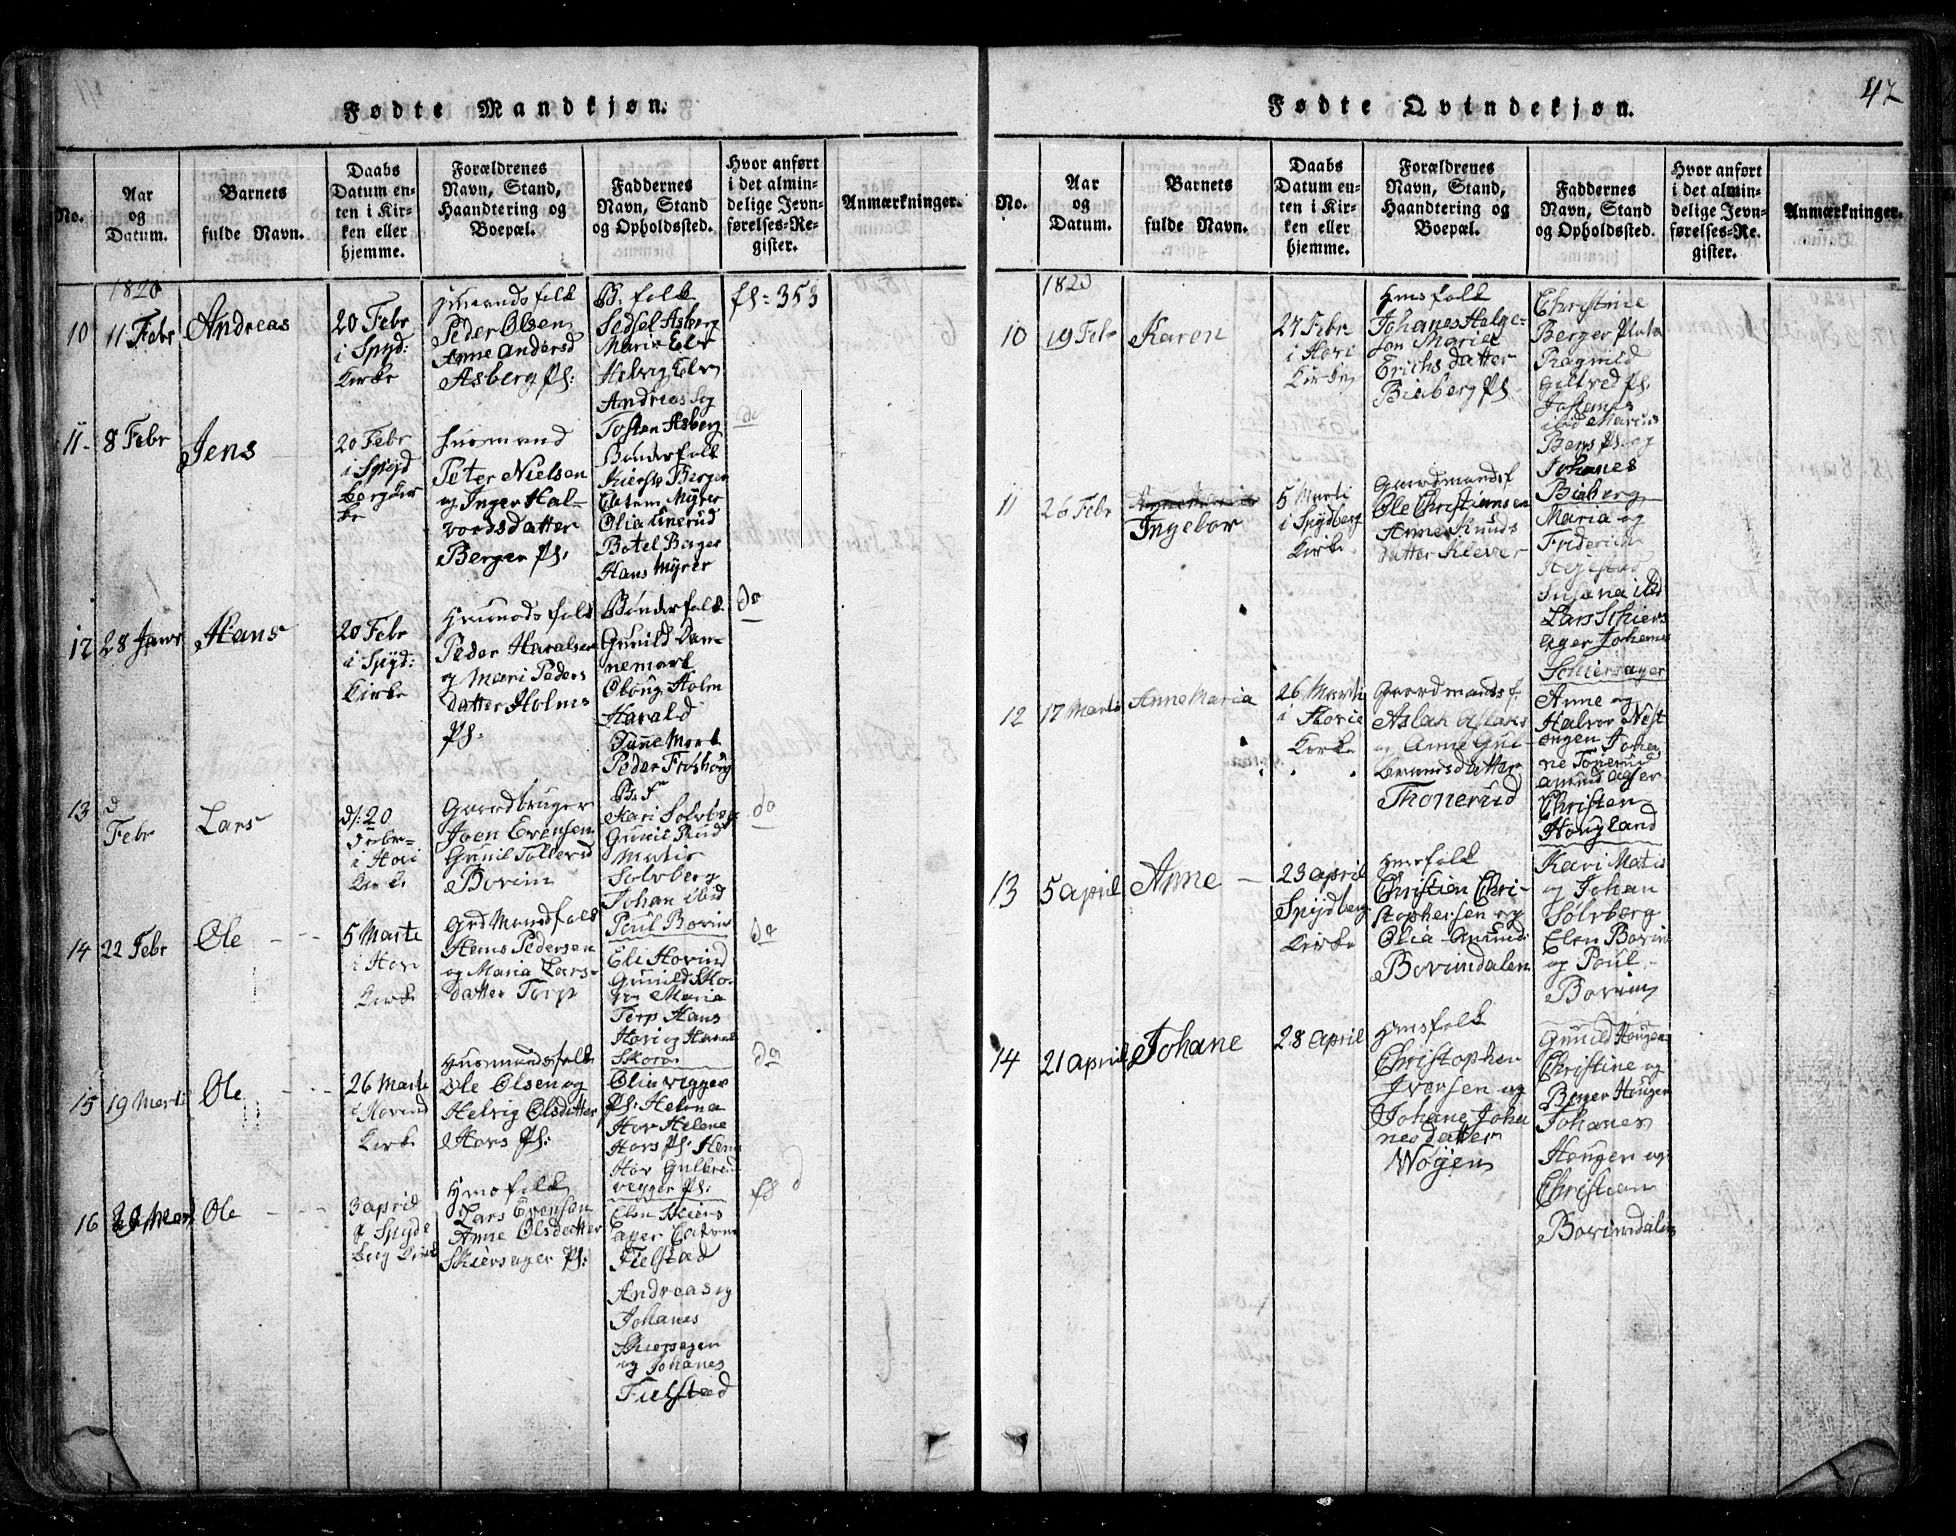 Fødte Mandkjøn.
No.
Aar
og
Datum.
Barnets
fulde Navn.
Daabs
Datum en-
ten i Kir-
ken eller
hjemme.
Forældrenes
Navn, Stand,
Haandtering og
Boepæl.
Faddernes
Navn, Stand
og Opholdssted.
Hvor anført
i det almin-
delige Jevn-
førelses-Re-
gister.
Anmærkninger.
1820
10
11 Febr
Andreas
20 Febr
i Spyd:
Kirke
Huusmandsfolk
Peder Olsen
Anne Andersd
Asberg Pl:
B: folk
Sedsel Asberg
Marie Elv
Helvig Elv
Andreas og
Tosten Asberg
fl: 353
11-
8 Febr
Jens
20 Febr
i Spyd
berger
ke
Huusmand
Peter Nielsen
og Inger Hal-
vordsdatter
Berger Pl:
Bønderfolk
Berger
Myrer
Olia
Botel Berger
Hans Myrer
do
12
28 Janr
Hans
20 Febr
i Spyd:
Kirke
Huusmandsfolk
Peder Haralsen
og Mari Peders
datter Holms
Pl:
Bønderfolk
Gunild Dan-
nemark
Holm
Harald
Dannemark
Peder Froshoug
do
13
d
Febr
Lars
d: 20
Febr
i Hovi
Kirke
Gaardbruger
Joen Evensen
Gunil
Bovim
B: F
Kari Solberg
Gunil Rud
Matis
Solvberg
Johan ibid
Poul Bovim
do
14
22 Febr
Ole
5 Marti
i Hov
Kirke
Grd Mandsfolk
Hans Pedersen
og Maria Lars-
datter Torp
Eli Hovind
Gunild Sko-
Maria
Torp Hans
Hovi og Hans
Skoro
do
15
19 Marti
Ole
26 Marti
i Hovind
Kirke
Huusmandsfolk
Ole Olsen og
Helvig Olsdatter
Hovs Pl:
Olia Vigger
Pl: Helena
Hov Helene
Hovs Pl:
Hov Gulbrand
Vigger Pl:
do
16
Ole
3 april
i Spyde
berg Kirke
Hmsfolk
Lars Evensen
Anne Olsdatter
Skiersager Pl:
Elen Skiers
ager
Fielstad
Andreas og
Johanes
Skiersager
og Johanes
Fielstad
fl
d
42
Fødte Qvindekjøn.
No.
Aar
og
Datum.
Barnets
fulde Navn.
Daabs
Datum en-
ten i Kir-
ken eller
hjemme.
Forældrenes
Navn, Stand,
Haandtering og
Boepæl.
Faddernes
Navn, Stand
og Opholdssted.
Hvor anført
i det almin-
delige Jevn-
førelses-Re-
gister.
Anmærkninger.
1820
10
19 Feb
Karen
27 Febr
i Hovi
Kirke
Hmsfolk
Johanes Helge-
sen Marie
Erichsdatter
Biaberg Pl
Christine
Berger
Ragnild
Pl.
Johanes
ibid Marius
Pl: og
Johanes
Biaberg
11
26 Febr
Ingebor
5 Marti
i Spydberg
Kirke
Gaardmandsf
Ole Christiansen
Anne Knuds
datter Klever
Maria og
Friderich
Susana ibid
Lars Schiers
ager Johanes
Schiersager
12
17 Marti
Anne Maria
26 Marti
i Hovie
Kirke
Gaardmandsf.
Aslak Aslaks
og Anne Gul-
brandsdatter
Thonerud
Anne og
Halvor Nest
engen Johan
ne Tonerud
Amund
Christen
Hougland
13
5 april
Anne
23 april
Spydberg
Kirke
Hmsfolk
Christian Chri-
stophersen og
Olia Amunds
Bovimdalen
Kari Matis
og Johan
Solvberg
Elen Bovim
og Poul
Bovim
14
21 april
Johane
28 april
Hmsfolk
Christopher
Iversen og
Johane Joha
nesdatter
Woyen
Gunild Hougen
Christine og
Berger Hougen
Johanes
Hougen og
Christian
Bovimdalen